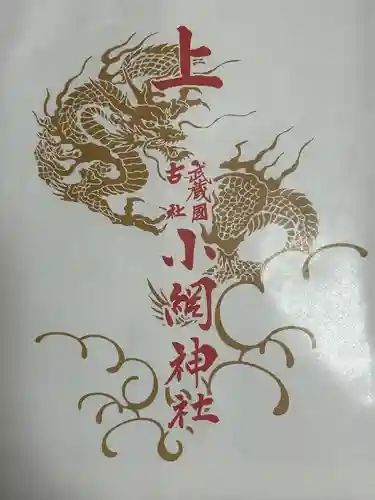 上
武蔵國
古社
小網神社